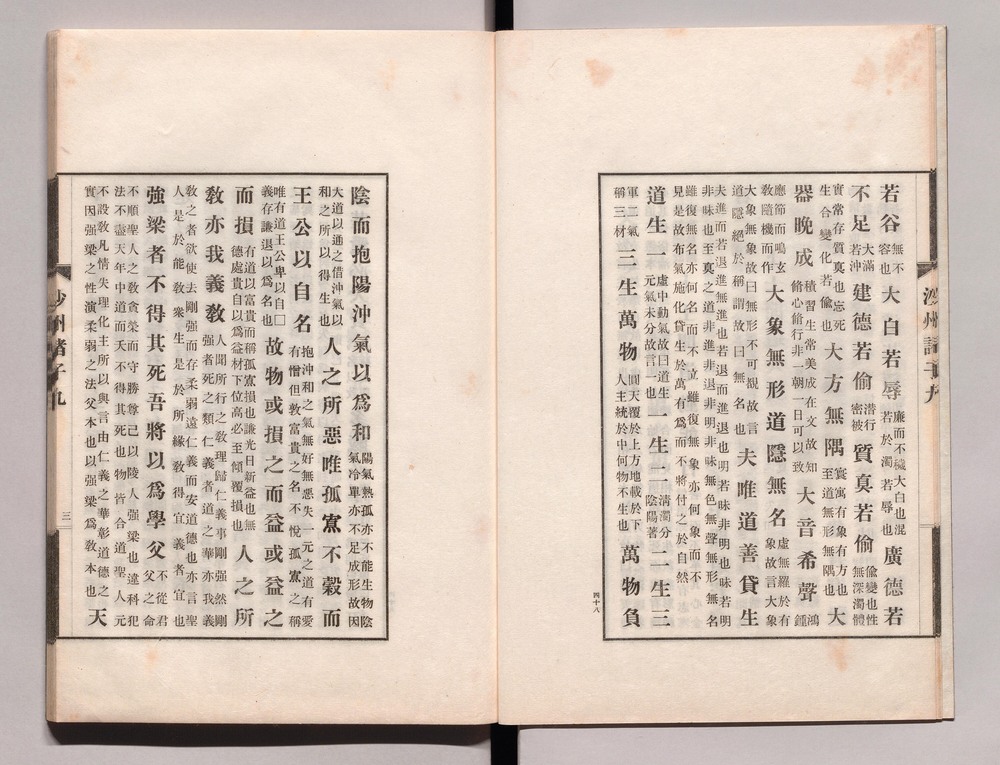 若谷無不容也大白若辱廉而不穢大白也混若於濁若辱也廣德若
不足大滿若沖建德若偷潛行密被質真若偷偷變也性無深濁體
實常存質真也忘死生合變化若偷也大方無隅寰寓有象有方也至道無形無隅也大
器晚成積習生常美成在文故知脩心脩行非一朝一日可以致大音希聲鴻鍾
應節而鳴玄敎隨機而作大象無形道隱無名虛無羅於有象故言大象
大象無象故曰無形不可觀故言道隱絕於稱謂故曰無名也夫唯道善貸生
夫進而若退進無進也若退而進退也明若昧非明也昧若明非昧也至真之道非進非退非明非昧無色無聲無形無名
雖復無名亦何名而不立雖復無象亦何象而不見是故布氣施化貸生於萬有爲而不將付之於自然
道生一虛中動氣故曰道生元氣未分故言一也一生二清濁分陰陽著二生三
軍二氣稱三材三生萬物圓天覆於上方地載於下人主統於中何物不生也萬物負
四十八
陰而抱陽沖氣以爲和陽氣熱孤亦不能生物陰氣冷單亦不足成形故因
大道以通之借沖氣以和之所以得生也人之所惡唯孤寡不穀而
王公以自名抱沖和之氣無好無惡失一元之道有愛有憎但敦富貴之名不悅孤寡之稱
唯有道王公卑以自□義存謙退以爲名也故物或損之而益或益之
而損有道以富貴而稱孤寡損也謙光日新益也無德處貴自以爲益材下位高必至傾覆損也人之所
敎亦我義敎人聞所行之敎理歸仁義事剛强然剛强者死之類仁義者道之華亦我義
敎之者欲使去剛强而存柔弱遠仁義而安道德也亦言聖人是於能敎衆生是於所緣敎得宜義者宜也
強梁者不得其死吾將以爲學父不從君父之命
不順聖人之敎貪榮而守勝尊己以陵人强梁也違科犯法不盡天年中道而夭不得其死也物皆合道聖人元
不設敎凡情失理化主所以興言由仁義之華彰道德之實因强梁之性演柔弱之法父本也以强梁爲敎本也天
三